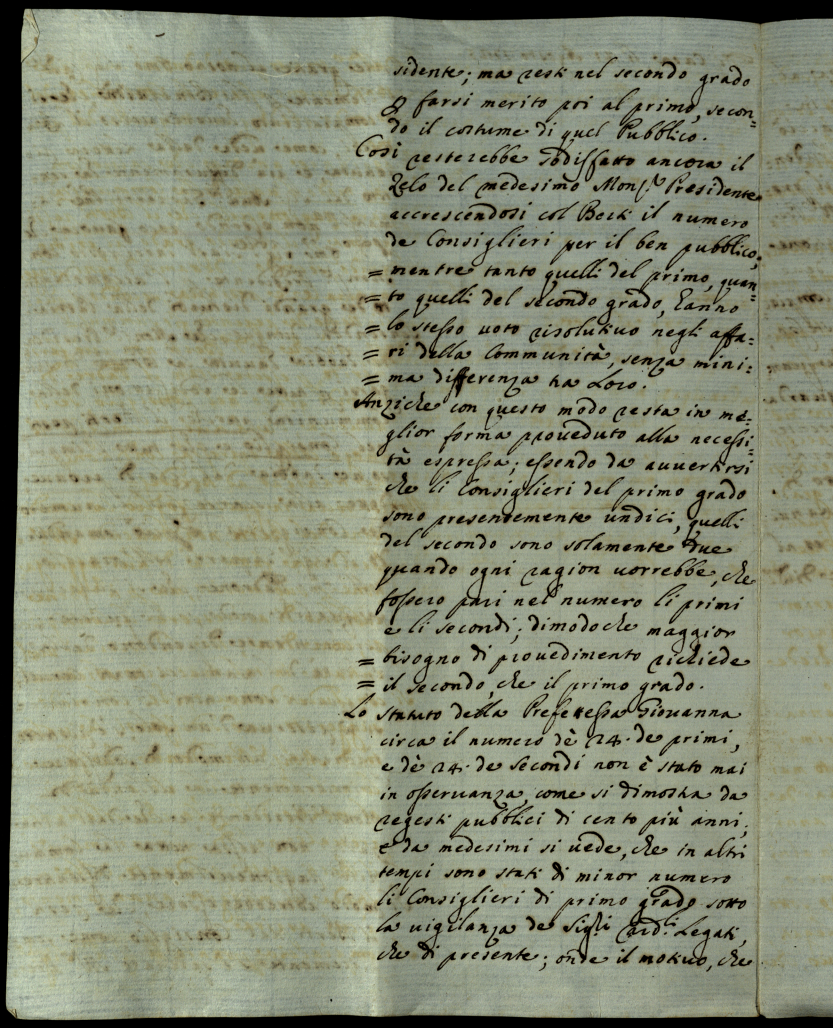 sidente; ma resti nel secondo grado
p farsi merito poi al primo, secon=
do il costume di quel Pubblico.
Così resterebbe sodisfatto ancora il
Zelo del medesimo Monsr Presidente
accrescendosi col Beck il numero
de Consiglieri per il ben pubblico;
= mentre tanto quelli del primo, quan=
= to quelli del secondo grado, hanno
= lo stesso uoto risolutiuo negli affa=
= ri della Communità, senza mini=
= ma differenza tra Loro.
Anziche con questo modo resta in me=
glior forma proueduto alla necessi=
tà espressa; essendo da auuertirsi
che li Consiglieri del primo grado
sono presentemente undici, quelli
del secondo sono solamente due
quando ogni ragion uorrebbe, che
fossero pari nel numero li primi
e li secondi; dimodoche maggior
= bisogno di prouedimento richiede
= il secondo, che il primo grado.
Lo statuto della Prefettessa Giouanna
circa il numero dè 24. de primi,
e dè 24. de secondi non è stato mai
in osseruanza, come si dimostra da
regesti pubblici di cento più anni;
e da medesimi si uede, che in altri
tempi sono stati di minor numero
li Consiglieri di primo grado sotto
la uigilanza de Sigri Cardli Legati,
che di presente; onde il motiuo, che